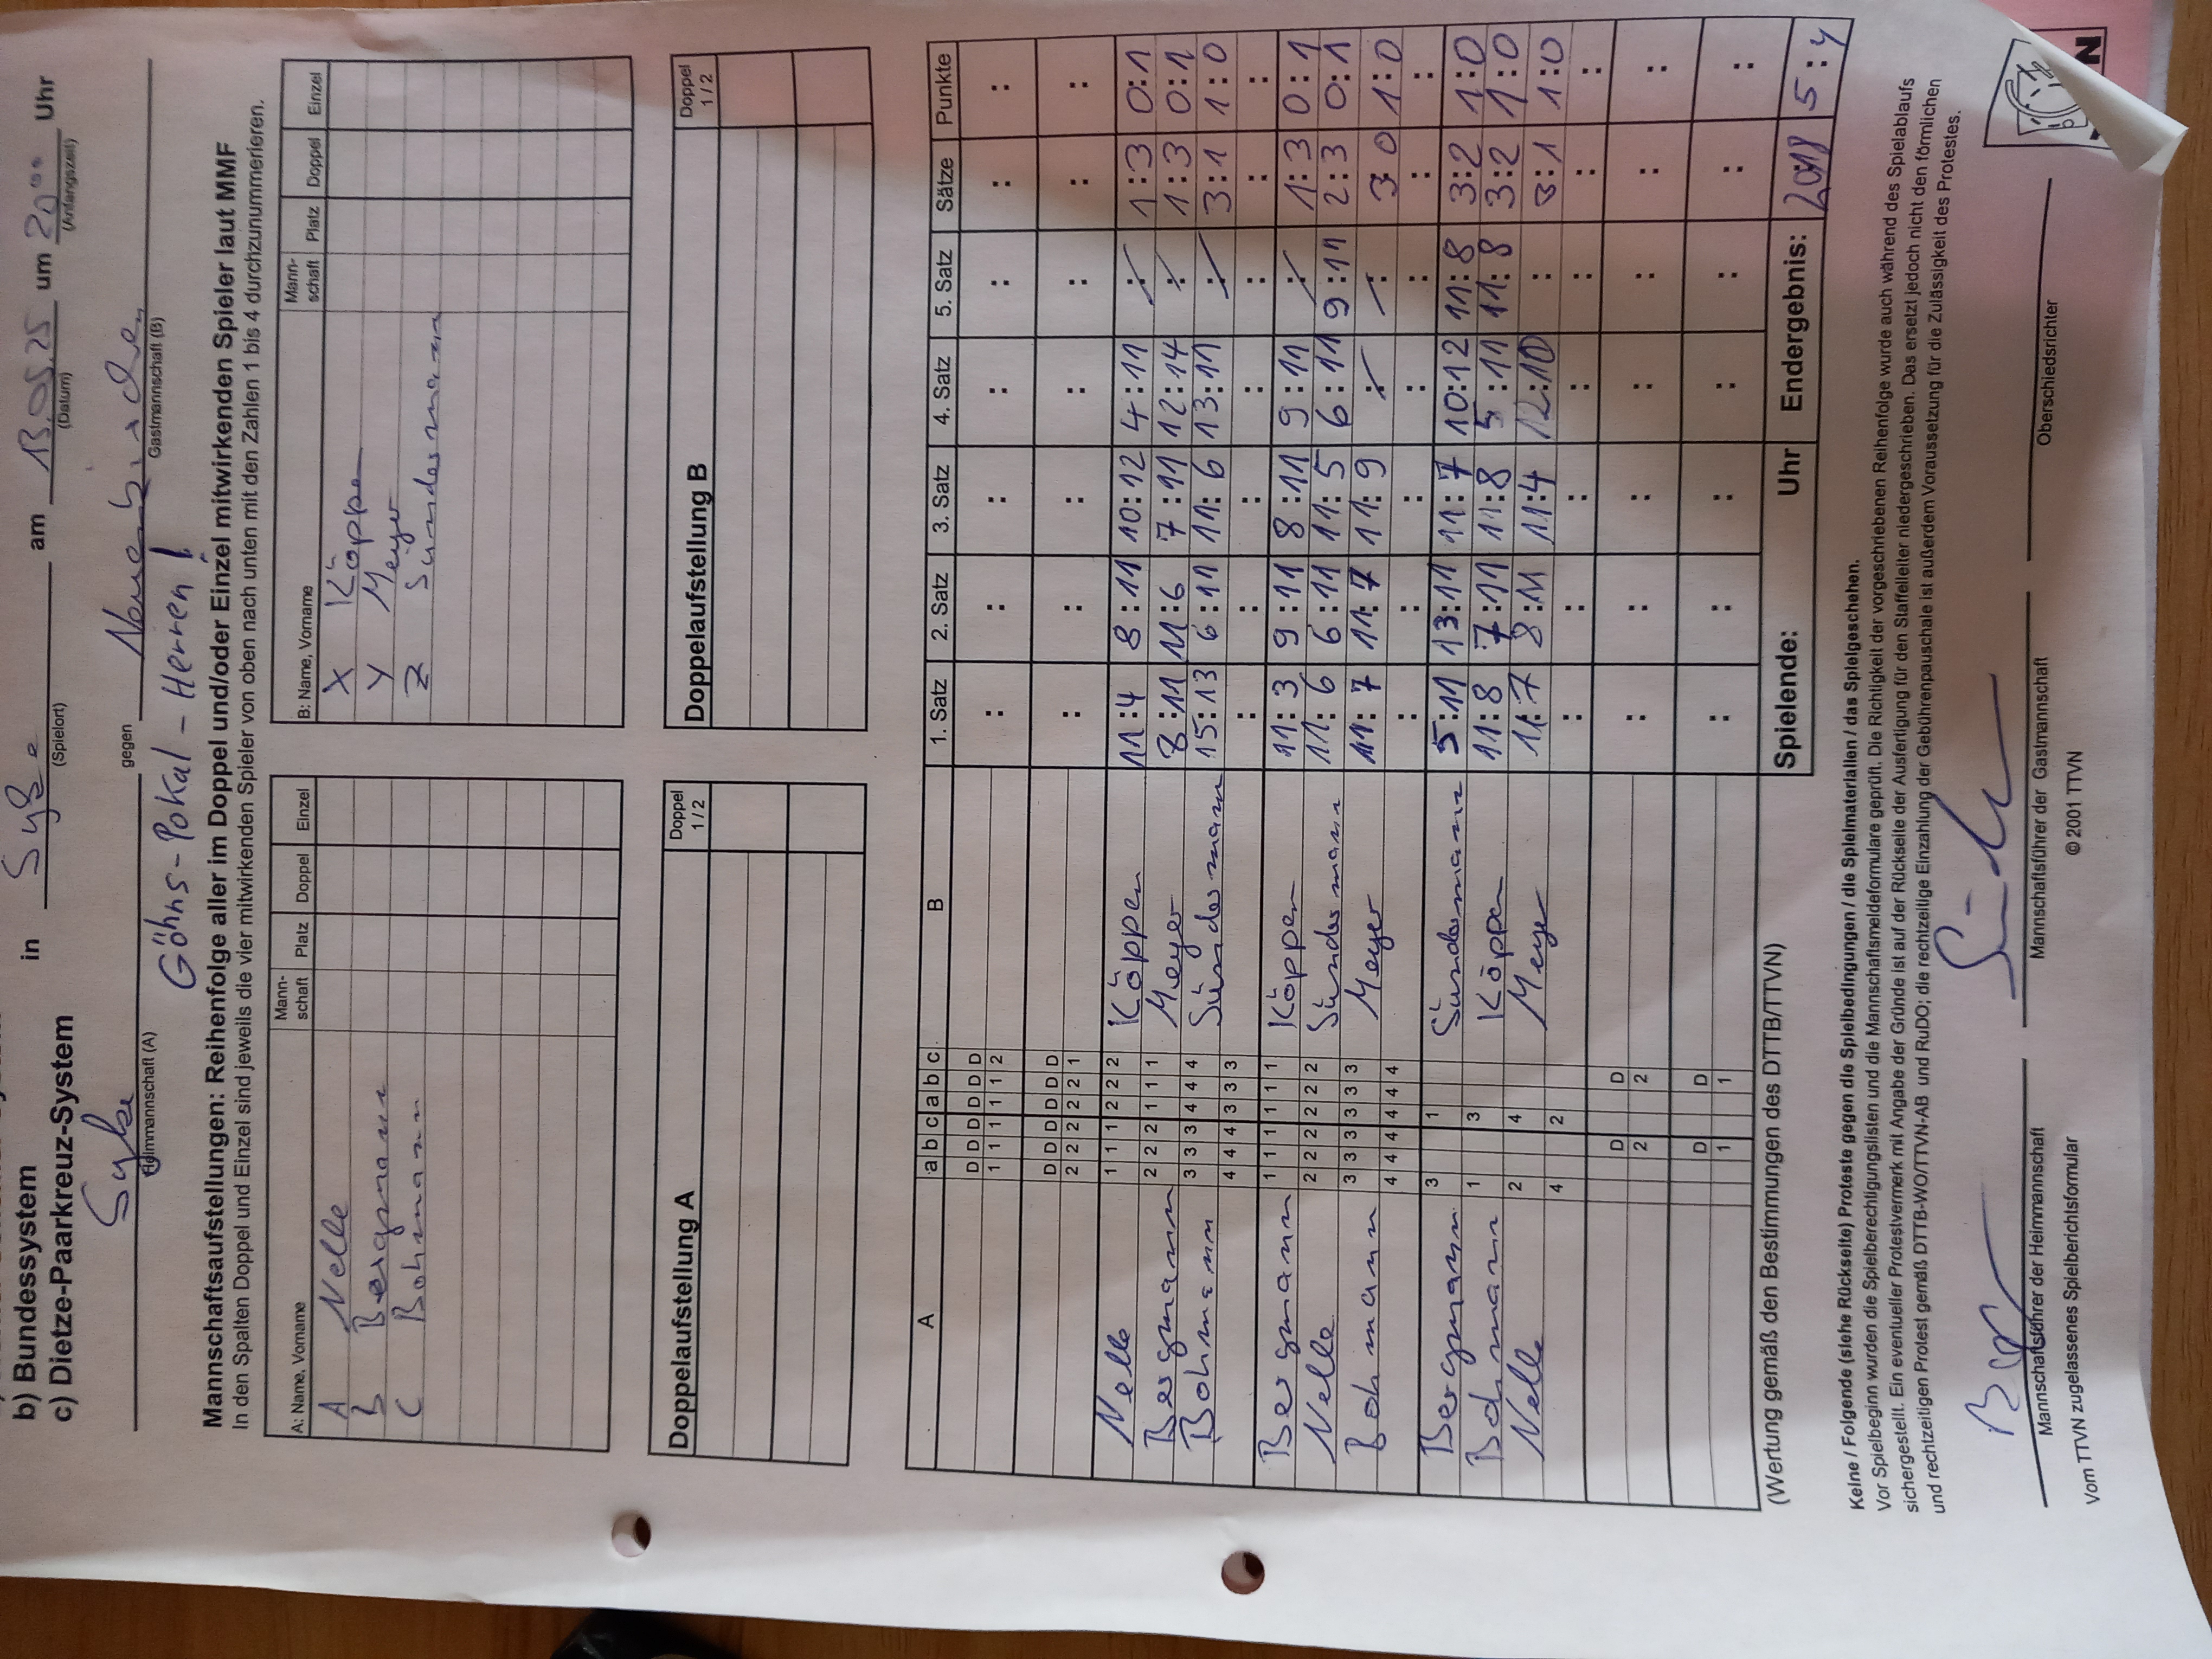 b) Bundessystem
c) Dietze-Paarkreuz-System
in Syke am 13.05.25 um 20⁰⁰ Uhr
(Spielort) (Datum) (Anfangszeit)
Syke gegen
Heimmannschaft (A) Gastmannschaft (B)
Göhns-Pokal-Herren!
Mannschaftsaufstellungen: Reihenfolge aller im Doppel und/oder Einzel mitwirkenden Spieler laut MMF
In den Spalten Doppel und Einzel sind jeweils die vier mitwirkenden Spieler von oben nach unten mit den Zahlen 1 bis 4 durchzunummerieren.
A: Name, Vorname Mann-schaft Platz Doppel Einzel B: Name, Vorname Mann-schaft Platz Doppel Einzel
A Nelle X Köppen
B Bergmann Y Meyer
C Bohmann Z Sündermann
Doppelaufstellung A Doppel 1/2 Doppelaufstellung B Doppel 1/2
A a b c a b c B 1. Satz 2. Satz 3. Satz 4. Satz 5. Satz Sätze Punkte
D D D D D D : : : : : : :
1 1 1 1 1 2
D D D D D D : : : : : : :
2 2 2 2 2 1
Nelle 1 1 1 2 2 2 Köppen 11:4 8:11 10:12 4:11 : 1:3 0:1
Bergmann 2 2 2 1 1 1 Meyer 8:11 11:6 7:11 12:14 : 1:3 0:1
Bohmann 3 3 3 4 4 4 Sündermann 15:13 6:11 11:6 13:11 : 3:1 1:0
4 4 4 3 3 3 : : : : : : :
Bergmann 1 1 1 1 1 1 Köppen 11:3 9:11 8:11 9:11 : 1:3 0:1
Nelle 2 2 2 2 2 2 Sündermann 11:6 6:11 11:5 6:11 9:11 2:3 0:1
Bohmann 3 3 3 3 3 3 Meyer 11:7 11:7 11:9 : : 3 0 1:0
4 4 4 4 4 4 : : : : : : :
Bergmann 3 1 Sündermann 5:11 13:11 11:7 10:12 11:8 3:2 1:0
Bohmann 1 3 Köppen 11:8 7:11 11:8 5:11 11:8 3:2 1:0
Nelle 2 4 Meyer 11:7 8:11 11:4 12:10 : 3:1 1:0
4 2 : : : : : : :
D D : : : : : : :
2 2
D D : : : : : : :
1 1
(Wertung gemäß den Bestimmungen des DTTB/TTVN) Spielende: Uhr Endergebnis: 5:4
Keine / Folgende (siehe Rückseite) Proteste gegen die Spielbedingungen / die Spielmaterialien / das Spielgeschehen.
Vor Spielbeginn wurden die Spielberechtigungslisten und die Mannschaftsmeldeformulare geprüft. Die Richtigkeit der vorgeschriebenen Reihenfolge wurde auch während des Spielablaufs
sichergestellt. Ein eventueller Protestvermerk mit Angabe der Gründe ist auf der Rückseite der Ausfertigung für den Staffelleiter niedergeschrieben. Das ersetzt jedoch nicht den förmlichen
und rechtzeitigen Protest gemäß DTTB-WO/TTVN-AB und RuDO; die rechtzeitige Einzahlung der Gebührenpauschale ist außerdem Voraussetzung für die Zulässigkeit des Protestes.
Mannschaftsführer der Heimmannschaft Mannschaftsführer der Gastmannschaft Oberschiedsrichter
Vom TTVN zugelassenes Spielberichtsformular © 2001 TTVN